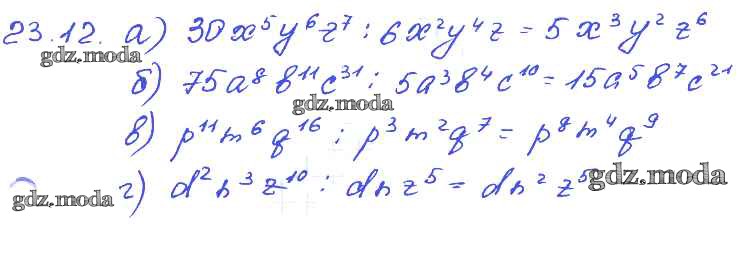 23.12. а) 30x⁵y⁶z⁷ : 6x²y⁴z = 5x³y²z⁶
gdz.moda
б) 75a⁸b¹¹c³¹ : 5a³b⁴c¹⁰ = 15a⁵b⁷c²¹
gdz.moda
в) p¹¹m⁶q¹⁶ : p³m²q⁷ = p⁸m⁴q⁹
г) d²n³z¹⁰ : dnz⁵ = dn²z⁵
gdz.moda
gdz.moda